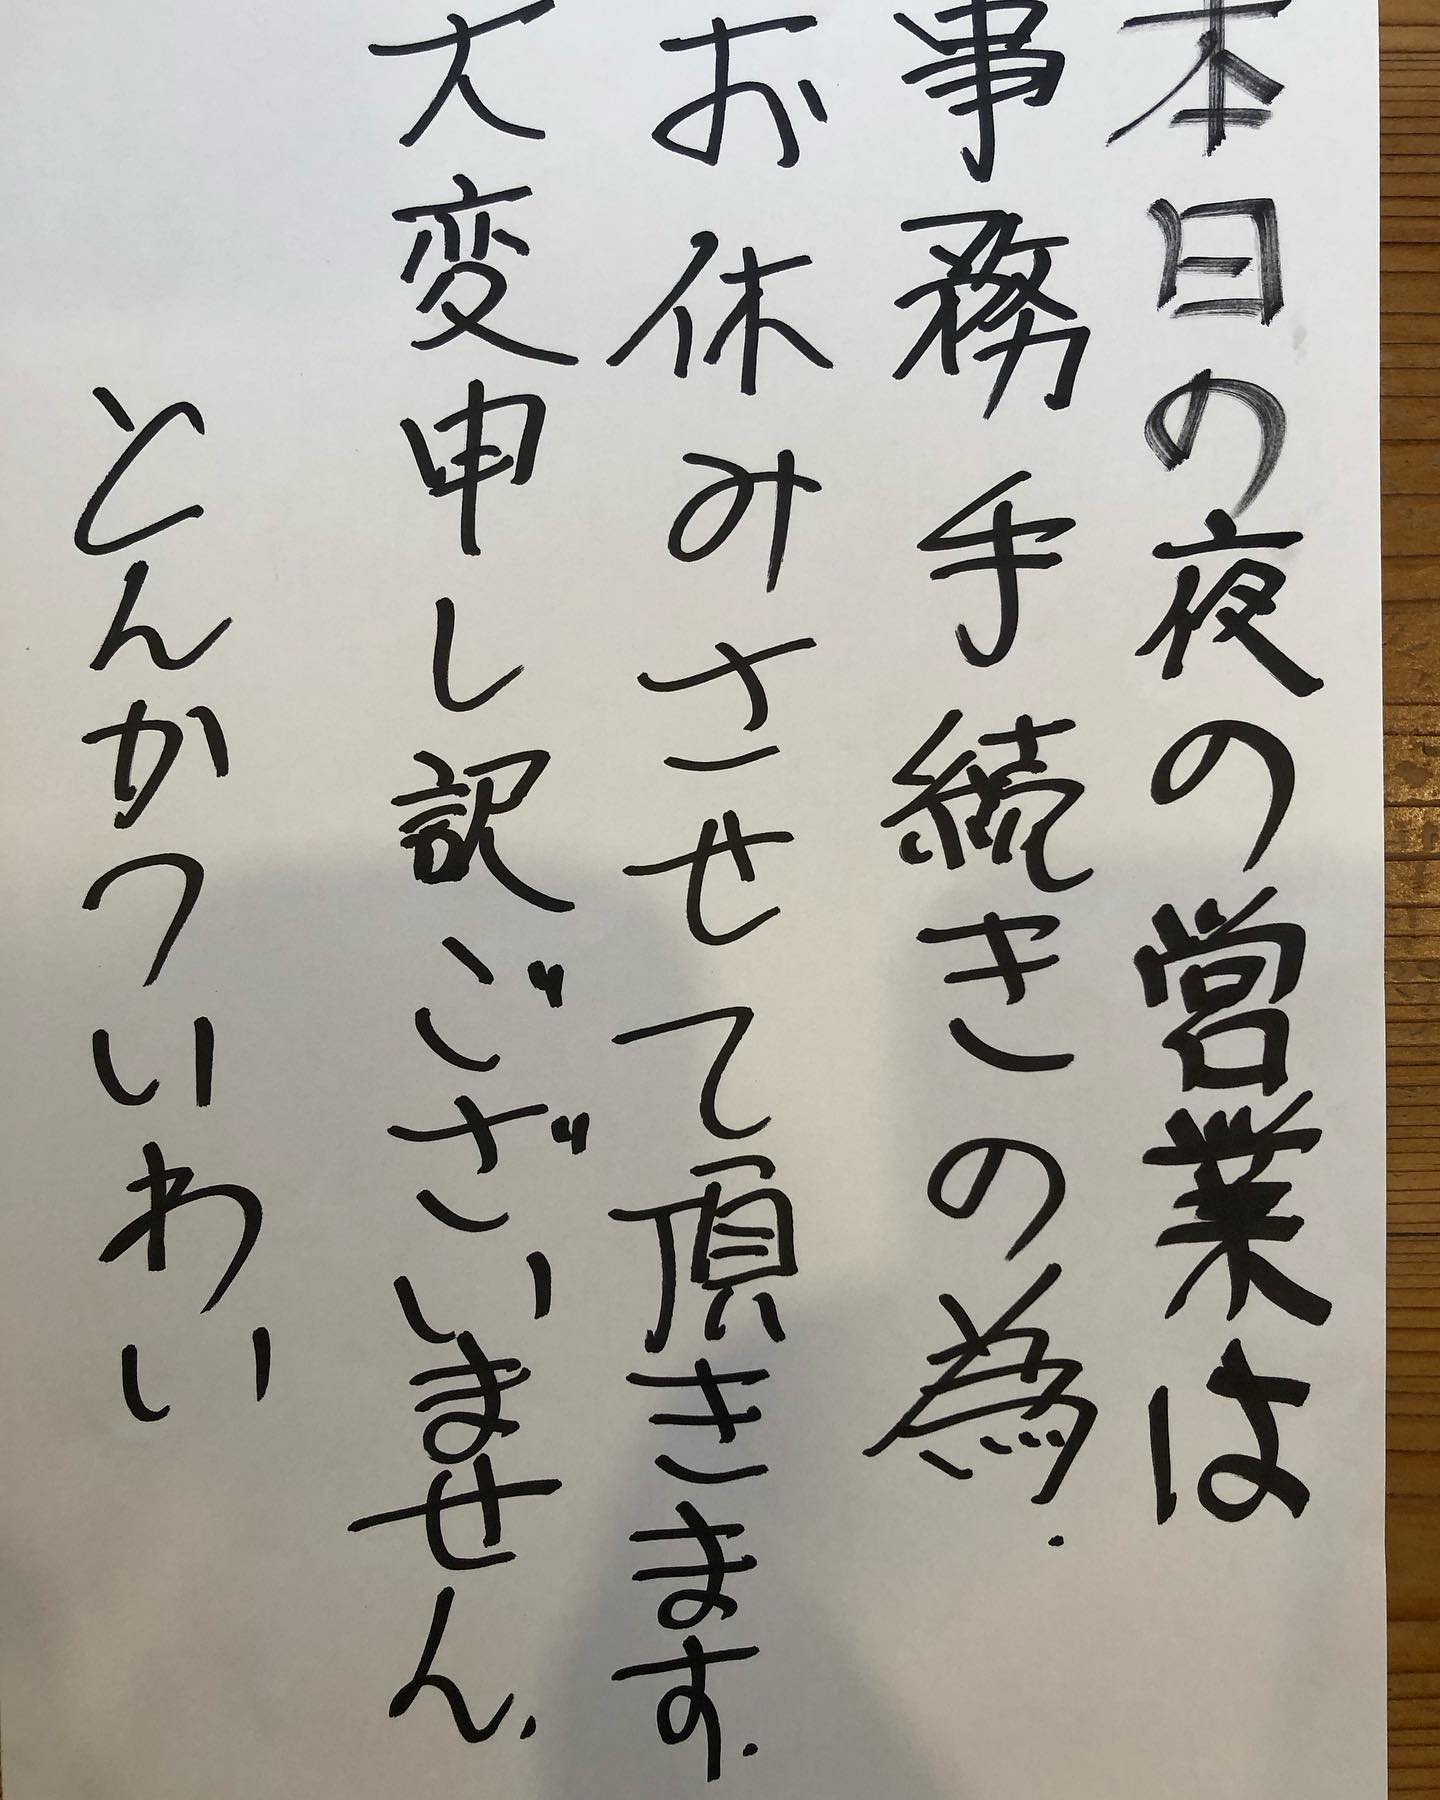 本日の夜の営業は
事務手続きの為.
お休みさせて頂きます.
大変申し訳ございません.
とんかついわい